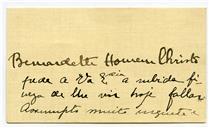 Bernardette Homem Christo
pede a V. Ex.cia a subida fi
neza de lhe vir hoje fallar
Assumpto muito urgente